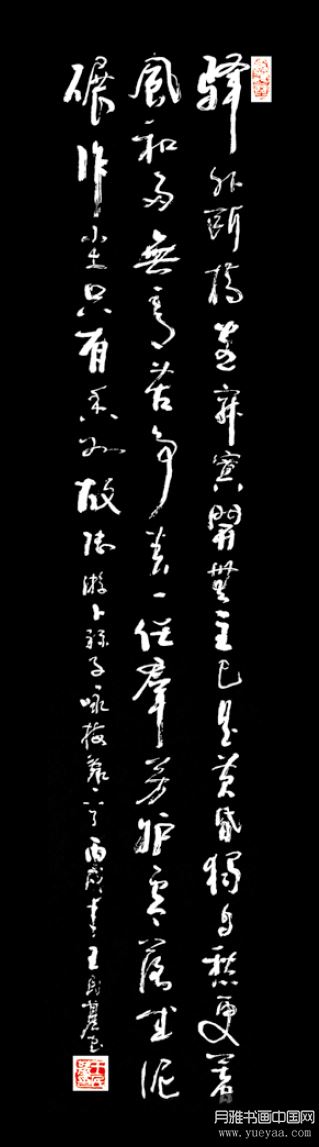 驿外断橋邊寂寞開無主已是黄昏獨自愁更著
風和雨無意苦争春一任羣芳妒零落成泥
碾作尘只有香如故陸游卜算子詠梅丙戌王民書
月雅书画中国网
www.yueyaa.com